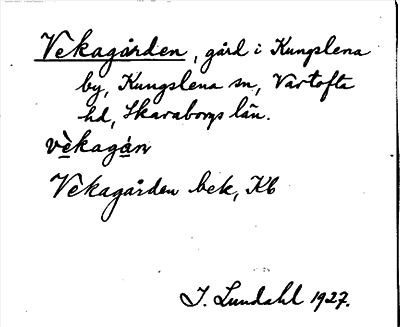 Vekagården, gård i Kungslena
by, Kungslena sn, Vartofta
hd, Skaraborgs län.
vè̠kagá̠n
Vekagården bek, Kb
I. Lundahl 1927.